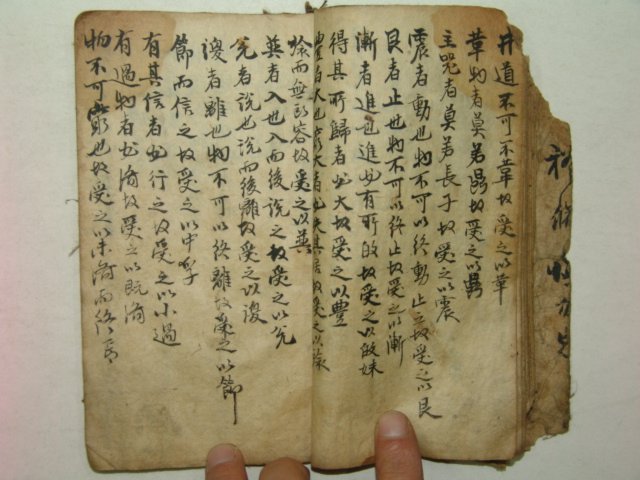 井道不可不革故受之以革
革物者莫若鼎故受之以鼎
主器者莫若長子故受之以震
震者動也物不可以終動止之故受之以艮
艮者止也物不可以終止故受之以漸
漸者進也進必有所故受之以故妹
得其所歸者必大故受之以豐
豐者大也窮大者必失其居故受之以旅
旅而無所容故受之以巽
巽者入也入而後說之故受之以兌
兌者說也說而後離故受之以渙
渙者離也物不可以終離故受之以節
節而信之故受之以中孚
有其信者必行之故受之以小過
有過物者必濟故受之以既濟
物不可窮也故受之以未濟而終焉